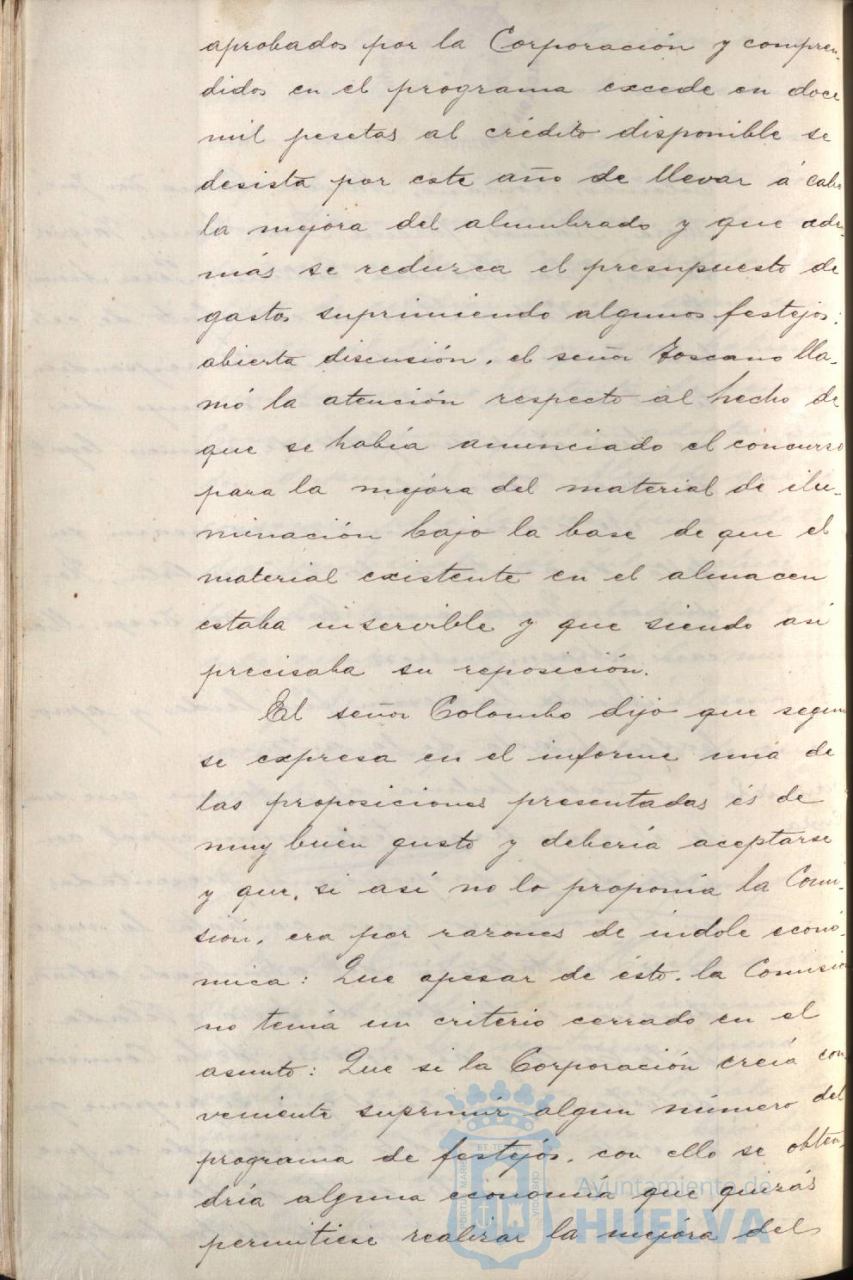 aprobados por la Corporación y compren-
didos en el programa excede en doce
mil pesetas al crédito disponible se
desista por este año de llevar á cabo
la mejora del alumbrado y que ade-
más se reduzca el presupuesto de
gastos suprimiendo algunos festejos:
abierta discusión, el señor Toscano lla-
mó la atención respecto al hecho de
que se había anunciado el concurso
para la mejora del material de ilu-
minación bajo la base de que el
material existente en el almacen
estaba inservible y que siendo así
precisaba su reposición.
El señor Colombo dijo que segun
se expresa en el informe una de
las proposiciones presentadas és de
muy buen gusto y debería aceptarse
y que, si así no lo proponía la Comi-
sión, era por razones de índole econó-
mica: Que apesar de ésto, la Comisión
no tenía un criterio cerrado en el
asunto: Que si la Corporación creía con-
veniente suprimir algun número del
programa de festejos, con ello se obten-
dría alguna economía que quizás
permitiese realizar la mejora del
Ayuntamiento de
HUELVA